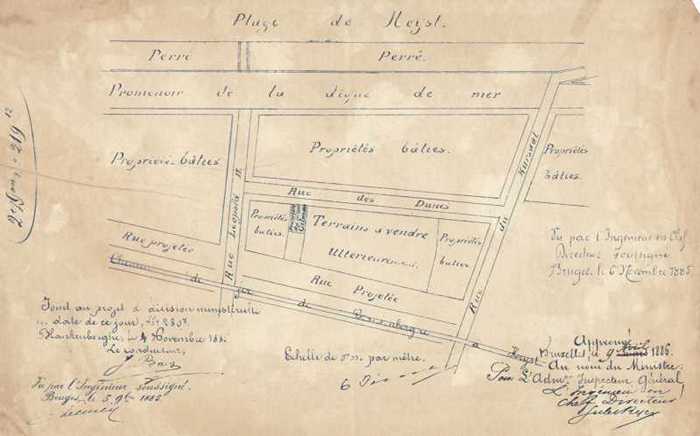 Plage de Heyst.
Perré
Perré.
Promenoir de la digue de mer
Propriétés bâties
Propriétés bâties.
Propriétés
bâties.
Rue Léopold II.
Rue des Dunes
Rue du Kursaal
Propriétés
bâties
Terrains à vendre
Ultérieurement.
Propriétés
bâties
Rue projetée
Rue Projetée
Chemin de fer de à Heyst
Vu par l'Ingénieur en Chef
Directeur soussigné
Bruges, le 6 Décembre 1885
Joint au projet de division
date de ce jour,
Blankenberghe, le 4 Novembre 188
Le conducteur,
Echelle de par mètre.
Vu par l'Ingénieur soussigné
Bruges le 5 9bre 1885
Approuvé
Bruxelles, le 9 Avril 1886.
Au nom du Ministre:
Pour l'Admr Inspecteur Général
L'Ingénieur en
Chef Directeur